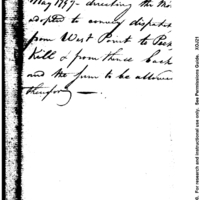 May 1779- directing the mo
adopted to convey dispatch
from West Point to Peek
Kill & from thence back
and the sum to be allowed
therefor —.
For research and instructional use only. See Permissions Guide. XG/01